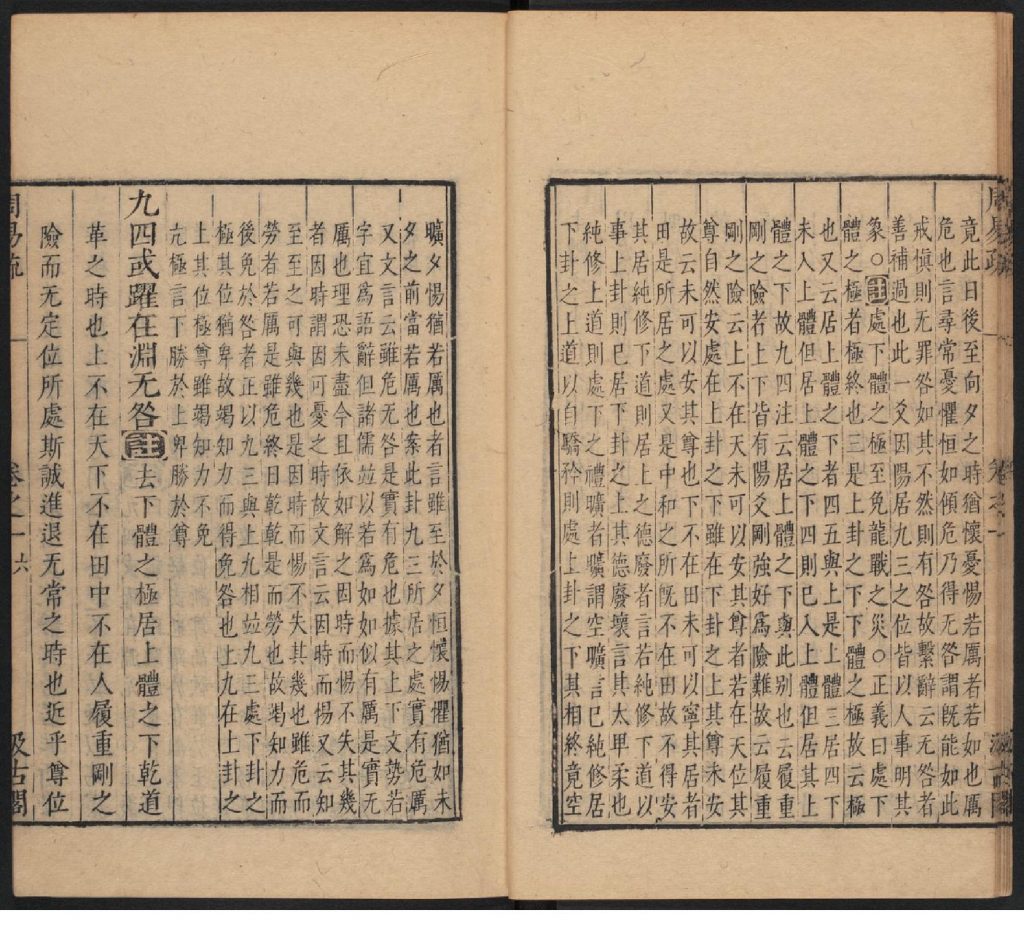 周易疏 卷之一
竟此日後至向夕之時猶懷憂惕若厲者若如也厲
危也言尋常憂懼恒如傾危乃得无咎謂旣能如此
戒愼則无罪咎如其不然則有咎故繫辭云无咎者
善補過也此一爻因陽居九三之位皆以人事明其
象○註處下體之極至免龍戰之災○正義曰處下
體之極者極終也三是上卦之下下體之極故云極
也又云居上體之下者四五與上是上體三居四下
未入上體但居上體之下四則已入上體但居其上
體之下故九四注云居上體之下與此别也云履重
剛之險者上下皆有陽爻剛強好爲險難故云履重
剛之險云上不在天未可以安其尊者若在天位其
尊自然安處在上卦之下雖在下卦之上其尊未安
故云未可以安其尊也下不在田未可以寧其居者
田是所居之處又是中和之所旣不在田故不得安
其居純修下道則居上之德廢者言若純修下道以
事上卦則已居下卦之上其德廢壞言其太卑柔也
純修上道則處下之禮曠者曠謂空曠言已純修居
下卦之上道以自驕矜則處上卦之下其相終竟空
曠夕惕猶若厲也者言雖至於夕恒懷惕懼猶如未
夕之前當若厲也案此卦九三所居之處實有危厲
又文言云雖危无咎是實有危也據其上下文勢若
字宜爲語辭但諸儒竝以若爲如如似有厲是實无
厲也理恐未盡今且依如解之因時而惕不失其幾
者因時謂因可憂之時故文言云因時而惕又云知
至至之可與幾也是因時而惕不失其幾也雖危而
勞者若厲是雖危終日乾乾是而勞也故竭知力而
後免於咎者正以九三與上九相竝九三處下卦之
極其位猶卑故竭知力而得免咎也上九在上卦之
上其位極尊雖竭知力不免
亢極言下勝於上卑勝於尊
九四或躍在淵无咎註去下體之極居上體之下乾道
革之時也上不在天下不在田中不在人履重剛之
險而无定位所處斯誠進退无常之時也近乎尊位
周易疏 卷之一 六 汲古閣